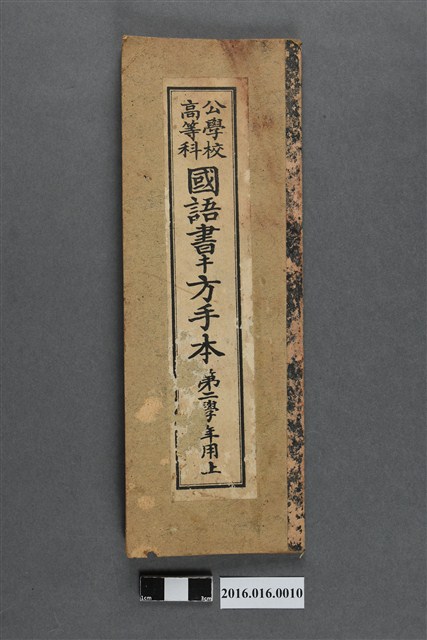 公學校
高等科
國語書キ方手本
第二學年用上
1cm
3cm
2016.016.0010